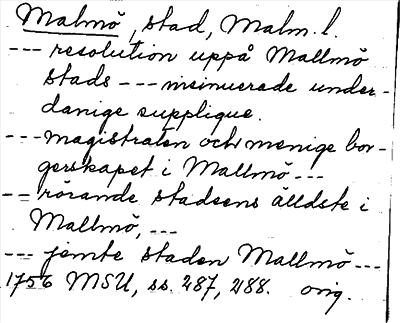 Malmö, stad, Malm. l.
--- resolution uppå Mallmö
stads --- insinuerade under-
danige supplique.
--- magistraten och menige bor-
gerskapet i Mallmö ---
--- rörande stadsens älldste i
Mallmö, ---
--- jemte staden Mallmö ---
1756 MSU, ss. 287, 288. orig.